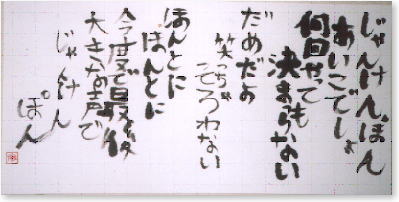 じゃんけんぽん
あいこでしょ
何回やっても
決まらない
だめだよ
笑っちゃ
そろわない
ほんとに
ほんとに
今度で最後
大きな声で
じゃけん
ぽん